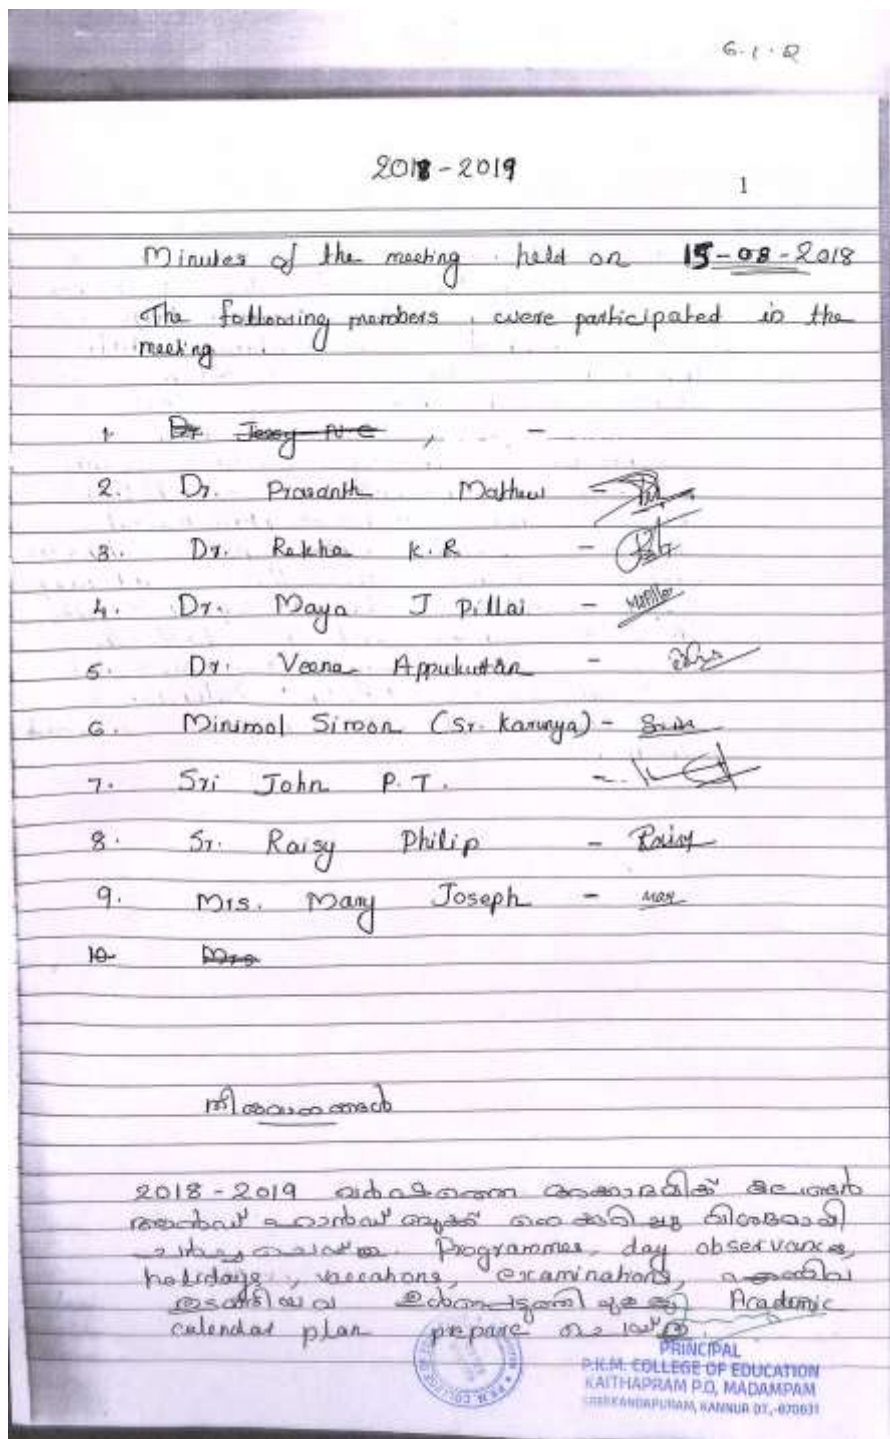 6.1.2
2018-2019
1
Minutes of the meeting held on 15-08-2018
The following members were participated in the
meeting
1. Dr. Jessy N C , -
2. Dr. Prasanth Mathew -
3. Dr. Rekha K.R -
4. Dr. Maya J Pillai -
5. Dr. Veena Appukuttan -
6. Minimol Simon (Sr. Karunya) -
7. Sri John P.T. -
8. Sr. Raisy Philip - Raisy
9. Mrs. Mary Joseph -
10 Mrs
തീരുമാനങ്ങൾ
2018-2019 വർഷത്തെ അക്കാദമിക്
ഹാൻഡ് ബുക്ക് വിശദമായി
ചർച്ച ചെയ്തു. Programmes, day observances,
holidays, vaccations, examinations, എന്നിവ
ഉൾപ്പെടുത്തി Academic
calendar plan prepare ചെയ്തു.
PRINCIPAL
P.K.M. COLLEGE OF EDUCATION
KAITHAPRAM P.O, MADAMPAM
SREEKANDAPURAM, KANNUR DT,-670631